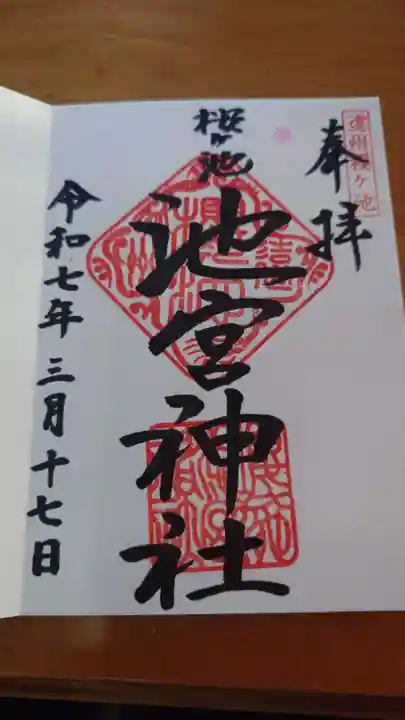 遠州桜ヶ池
奉拝
桜ヶ池
池宮神社
令和七年三月十七日